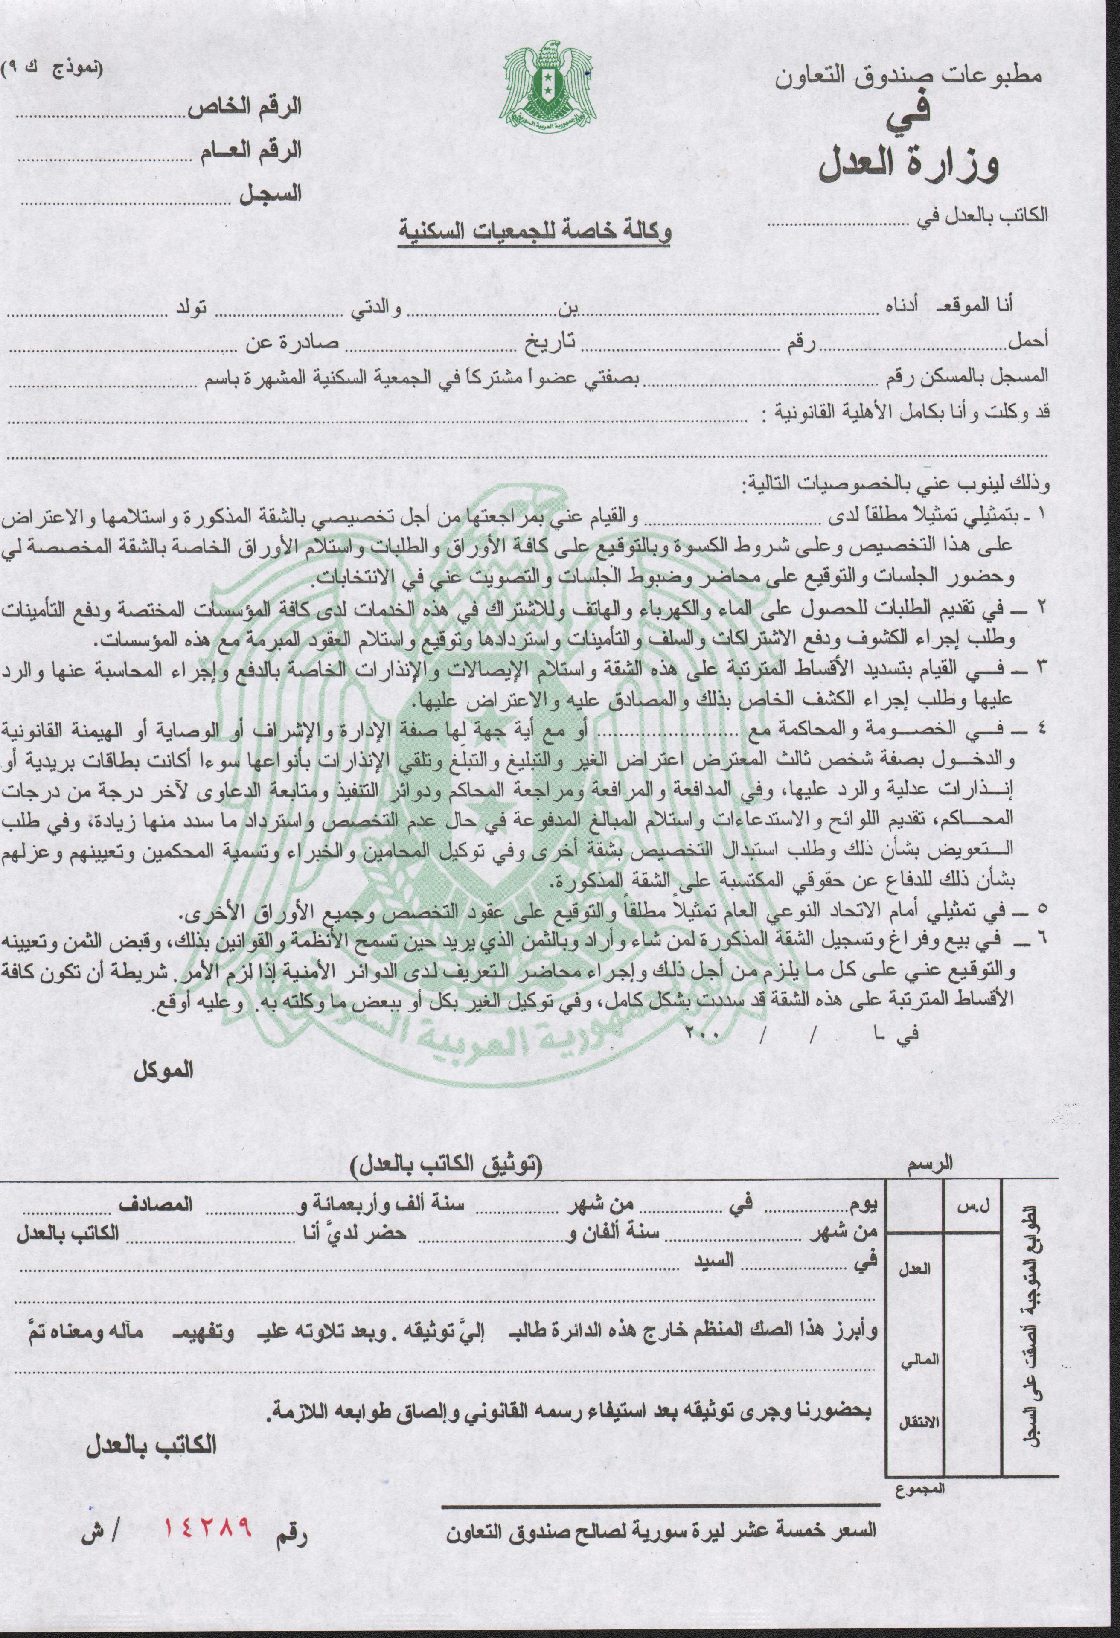 مطبوعات صندوق التعاون
في
وزارة العدل
الكاتب بالعدل في ....................
(نموذج ك ٩)
الرقم الخاص ....................
الرقم العـام ....................
السجـل ....................
وكالة خاصة للجمعيات السكنية
أنا الموقعـ أدناه .................... بن .................... والدتي .................... تولد ....................
أحمل .................... رقم .................... تاريخ .................... صادرة عن ....................
المسجل بالمسكن رقم .................... بصفتي عضواً مشتركاً في الجمعية السكنية المشهرة باسم ....................
قد وكلت وأنا بكامل الأهلية القانونية : ....................
....................
وذلك لينوب عني بالخصوصيات التالية:
١ ـ بتمثيلي تمثيلاً مطلقاً لدى .................... والقيام عني بمراجعتها من أجل تخصيصي بالشقة المذكورة واستلامها والاعتراض
على هذا التخصيص وعلى شروط الكسوة وبالتوقيع على كافة الأوراق والطلبات واستلام الأوراق الخاصة بالشقة المخصصة لي
وحضور الجلسات والتوقيع على محاضر وضبوط الجلسات والتصويت عني في الانتخابات.
٢ ــ في تقديم الطلبات للحصول على الماء والكهرباء والهاتف وللاشتراك في هذه الخدمات لدى كافة المؤسسات المختصة ودفع التأمينات
وطلب إجراء الكشوف ودفع الاشتراكات والسلف والتأمينات واستردادها وتوقيع واستلام العقود المبرمة مع هذه المؤسسات.
٣ ــ فـــي القيام بتسديد الأقساط المترتبة على هذه الشقة واستلام الإيصالات والإنذارات الخاصة بالدفع وإجراء المحاسبة عنها والرد
عليها وطلب إجراء الكشف الخاص بذلك والمصادق عليه والاعتراض عليها.
٤ ــ فـــي الخصـــومة والمحاكمة مع .................... أو مع أية جهة لها صفة الإدارة والإشراف أو الوصاية أو الهيمنة القانونية
والدخــول بصفة شخص ثالث المعترض اعتراض الغير والتبليغ والتبلّغ وتلقي الإنذارات بأنواعها سوءا أكانت بطاقات بريدية أو
إنــذارات عدلية والرد عليها، وفي المدافعة والمرافعة ومراجعة المحاكم ودوائر التنفيذ ومتابعة الدعاوى لآخر درجة من درجات
المحـــاكم، تقديم اللوائح والاستدعاءات واستلام المبالغ المدفوعة في حال عدم التخصص واسترداد ما سدد منها زيادة، وفي طلب
الــتعويض بشأن ذلك وطلب استبدال التخصيص بشقة أخرى وفي توكيل المحامين والخبراء وتسمية المحكمين وتعيينهم وعزلهم
بشأن ذلك للدفاع عن حقوقي المكتسبة على الشقة المذكورة.
٥ ــ في تمثيلي أمام الاتحاد النوعي العام تمثيلاً مطلقاً والتوقيع على عقود التخصص وجميع الأوراق الأخرى.
٦ ــ في بيع وفراغ وتسجيل الشقة المذكورة لمن شاء وأراد وبالثمن الذي يريد حين تسمح الأنظمة والقوانين بذلك، وقبض الثمن وتعيينه
والتوقيع عني على كل ما يلزم من أجل ذلك وإجراء محاضر التعريف لدى الدوائر الأمنية إذا لزم الأمر. شريطة أن تكون كافة
الأقساط المترتبة على هذه الشقة قد سددت بشكل كامل، وفي توكيل الغير بكل أو ببعض ما وكلته به. وعليه أوقع.
في ـا / / ٢٠٠
الموكل
الرسم
(توثيق الكاتب بالعدل)
يوم .................... في .................... من شهر .................... سنة ألف وأربعمائة و .................... المصادف ....................
من شهر .................... سنة ألفان و .................... حضر لديَّ أنا .................... الكاتب بالعدل
في .................... السيد ....................
....................
وأبرز هذا الصك المنظم خارج هذه الدائرة طالبـ إليَّ توثيقه . وبعد تلاوته عليـ وتفهيمـ مآله ومعناه تمَّ
....................
بحضورنا وجرى توثيقه بعد استيفاء رسمه القانوني وإلصاق طوابعه اللازمة.
الكاتب بالعدل
ل.س
العدل
المالي
الانتقال
المجموع
الطوابع المتوجبة ألصقت على السجل
السعر خمسة عشر ليرة سورية لصالح صندوق التعاون
رقم ١٤٢٨٩ / ش
الجمهورية العربية السورية